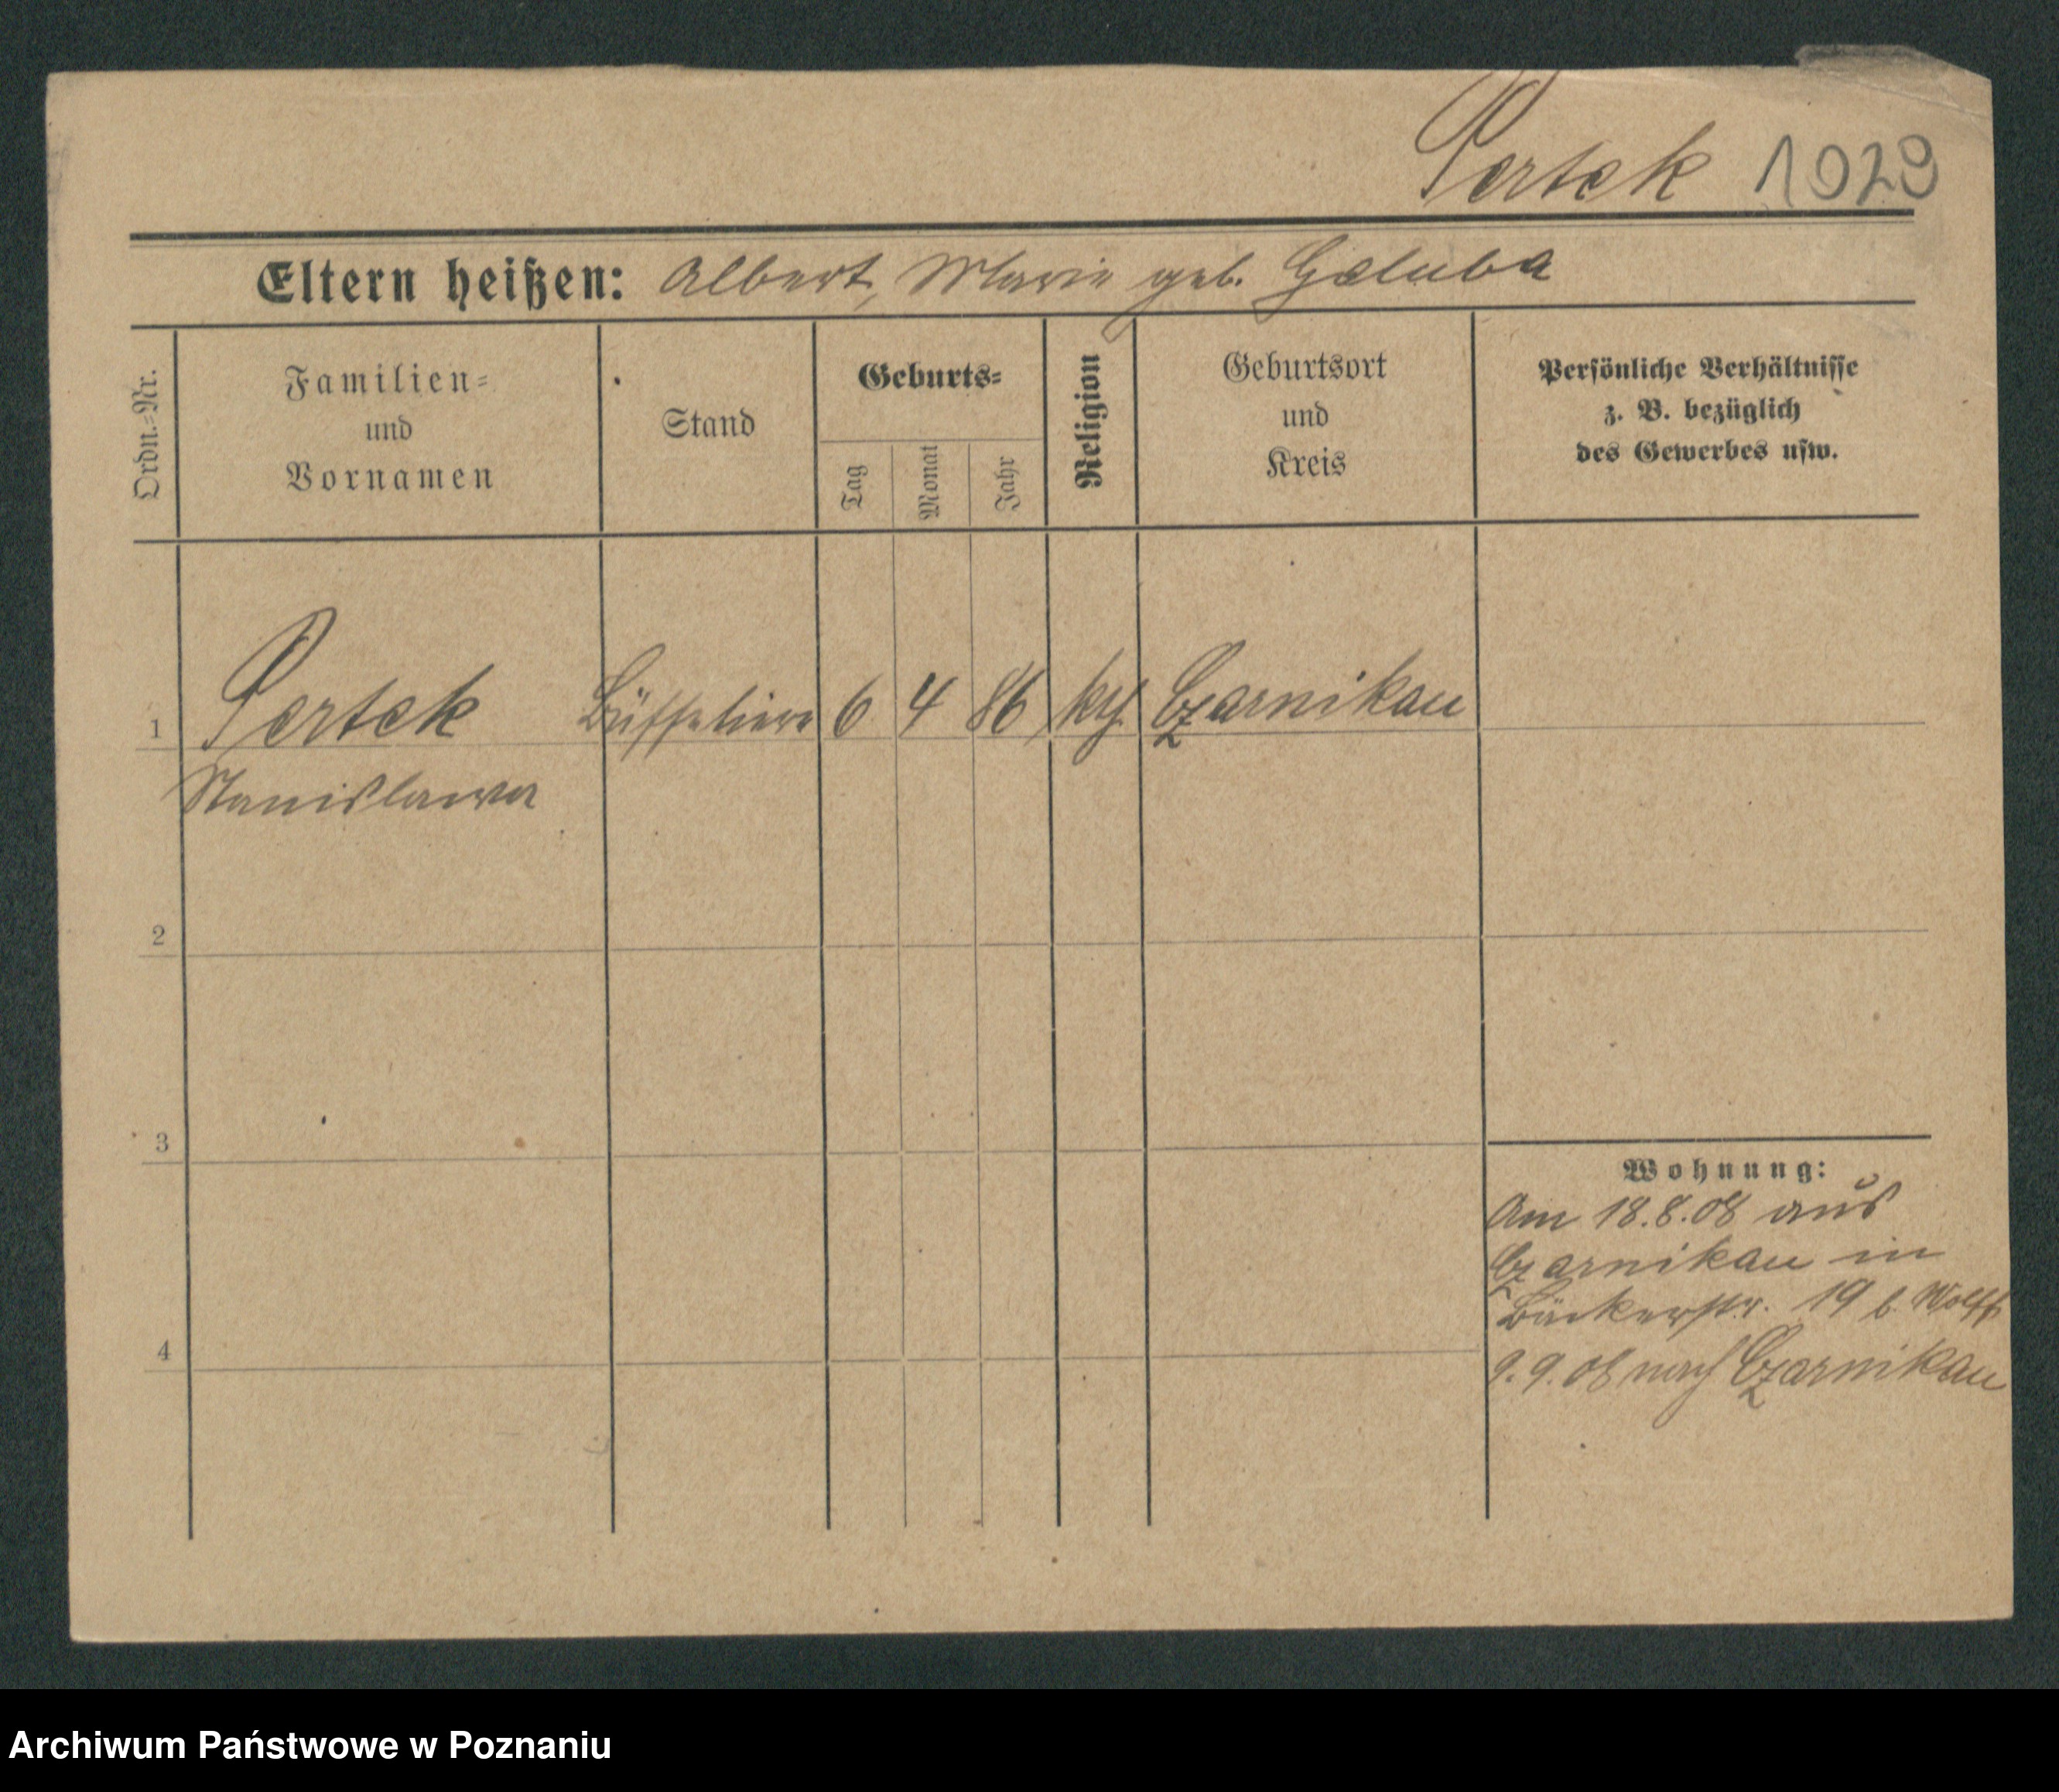 Pertek 1029
Eltern heißen: Albert, Marie geb. Galuba
Ordn.=Nr.
Familien=
und
Vornamen
Stand
Geburts=
Tag
Monat
Jahr
Religion
Geburtsort
und
Kreis
Persönliche Verhältnisse
z. B. bezüglich
des Gewerbes usw.
1 Pertek Büffetiere 6 4 86 kth Czarnikau
Stanislawa
2
3
4
Wohnung:
Am 18.8.08 aus
Czarnikau in
Bäckerstr. 19 b. Wolff
9.9.08 nach Czarnikau
Archiwum Państwowe w Poznaniu